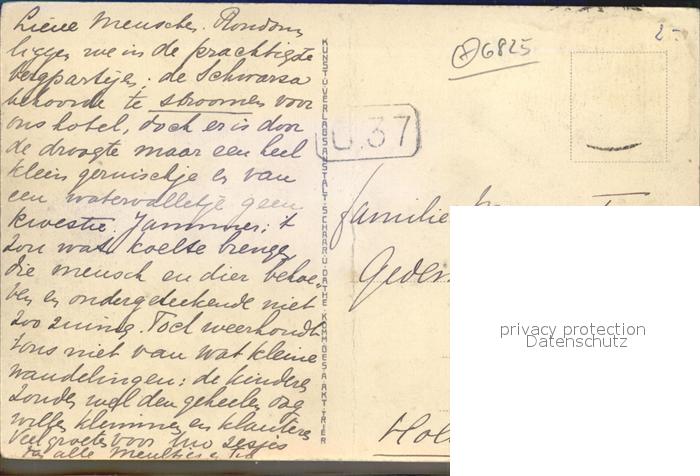 Lieve Menschen. Rondom
liggen we in de prachtigste
bergpartijen. de Schwarza
behoorde te stroomen voor
ons hotel, doch er is door
de droogte maar een heel
klein geruischje er van
een watervalletje geen
kwestie. Jammer; 't
zou wat koelte brengen
die mensch en dier behoe-
ven en ondergeteekende niet
zoo zuinig. Toch weerhoudt
ons niet van wat kleine
wandelingen: de kinderen
zouden wel den geheelen dag
willen klimmen en klauteren
Veel groeten voor
alle
KUNST U. VERLAGSANSTALT SCHAAR U. DATHE KOMM.-GES. A. AKT. TRIER
6825
2-
37
familie
Hol
privacy protection
Datenschutz